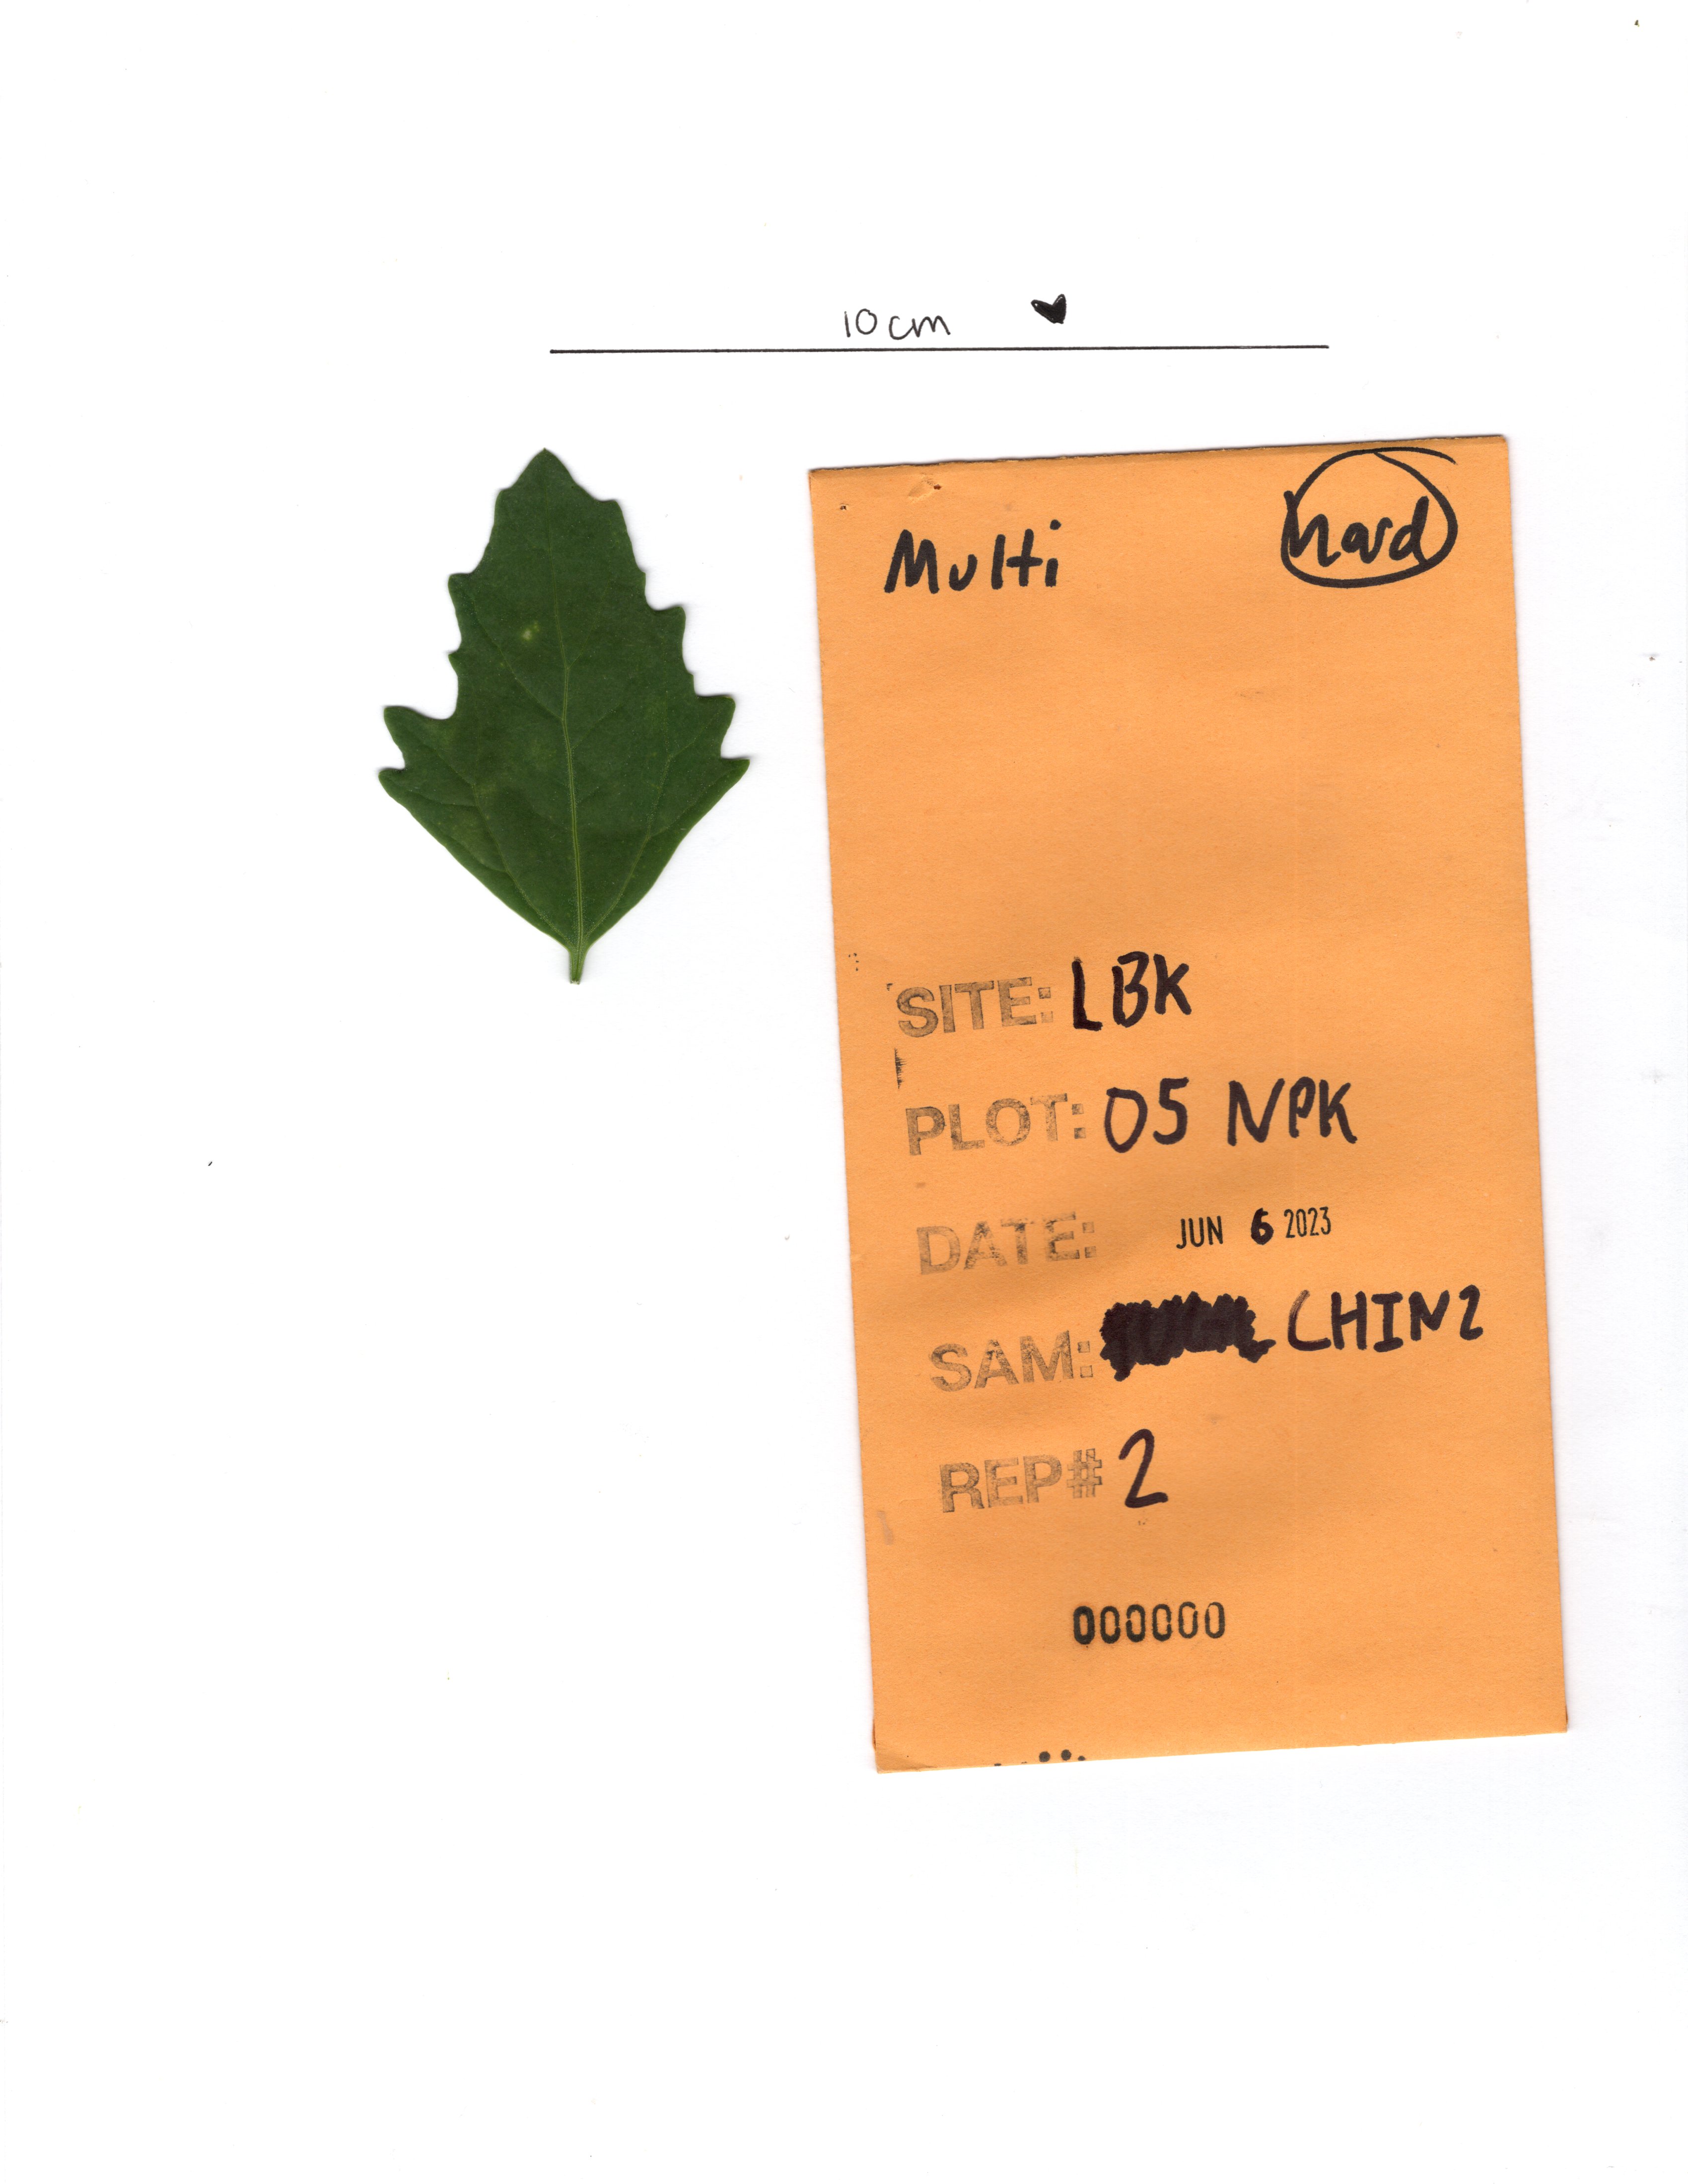 10cm
Multi
hard
SITE: LBK
PLOT: 05 NPK
DATE: JUN 6 2023
SAM: CHIN2
REP# 2
000000